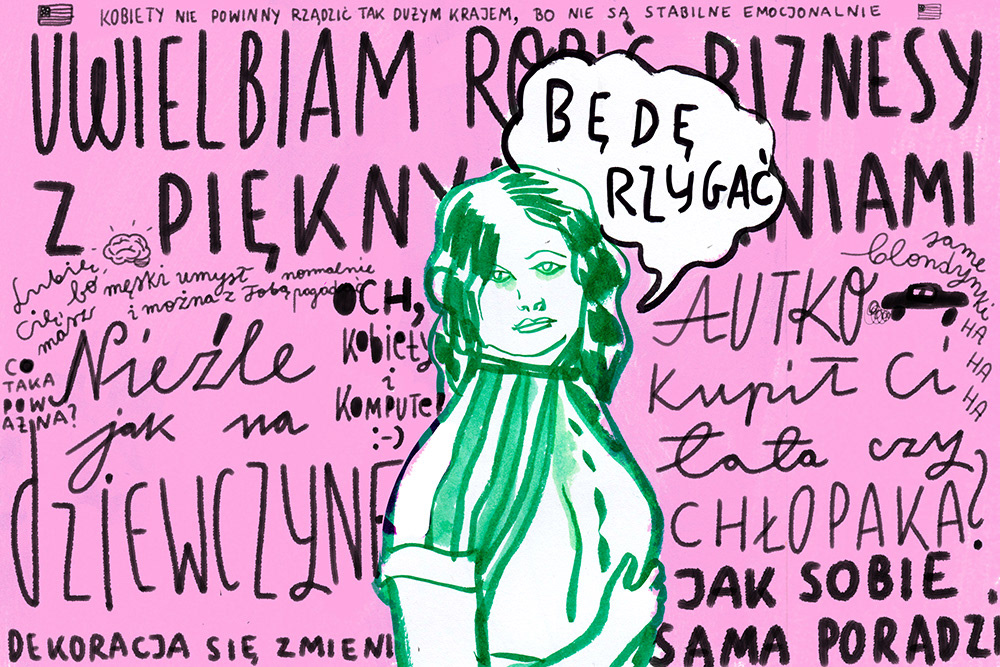 KOBIETY NIE POWINNY RZĄDZIĆ TAK DUŻYM KRAJEM, BO NIE SĄ STABILNE EMOCJONALNIE
UWIELBIAM ROBIĆ BIZNESY
Z PIĘKNY NIAMI
BĘDĘ
RZYGAĆ
Lubię
Cię,
bo męski umysł
masz
i można z Tobą pogadać
normalnie
CO
TAKA
POWI
AŻNA?
Nieźle
jak na
DZIEWCZYNĘ
OCH,
Kobiety
i
KOMPUTE
:-)
same
blondynki
HA
HA
HA
HA
AUTKO
Kupił Ci
tata czy
CHŁOPAK?
JAK SOBIE
SAMA PORADZI
DEKORACJA SIĘ ZMIENI